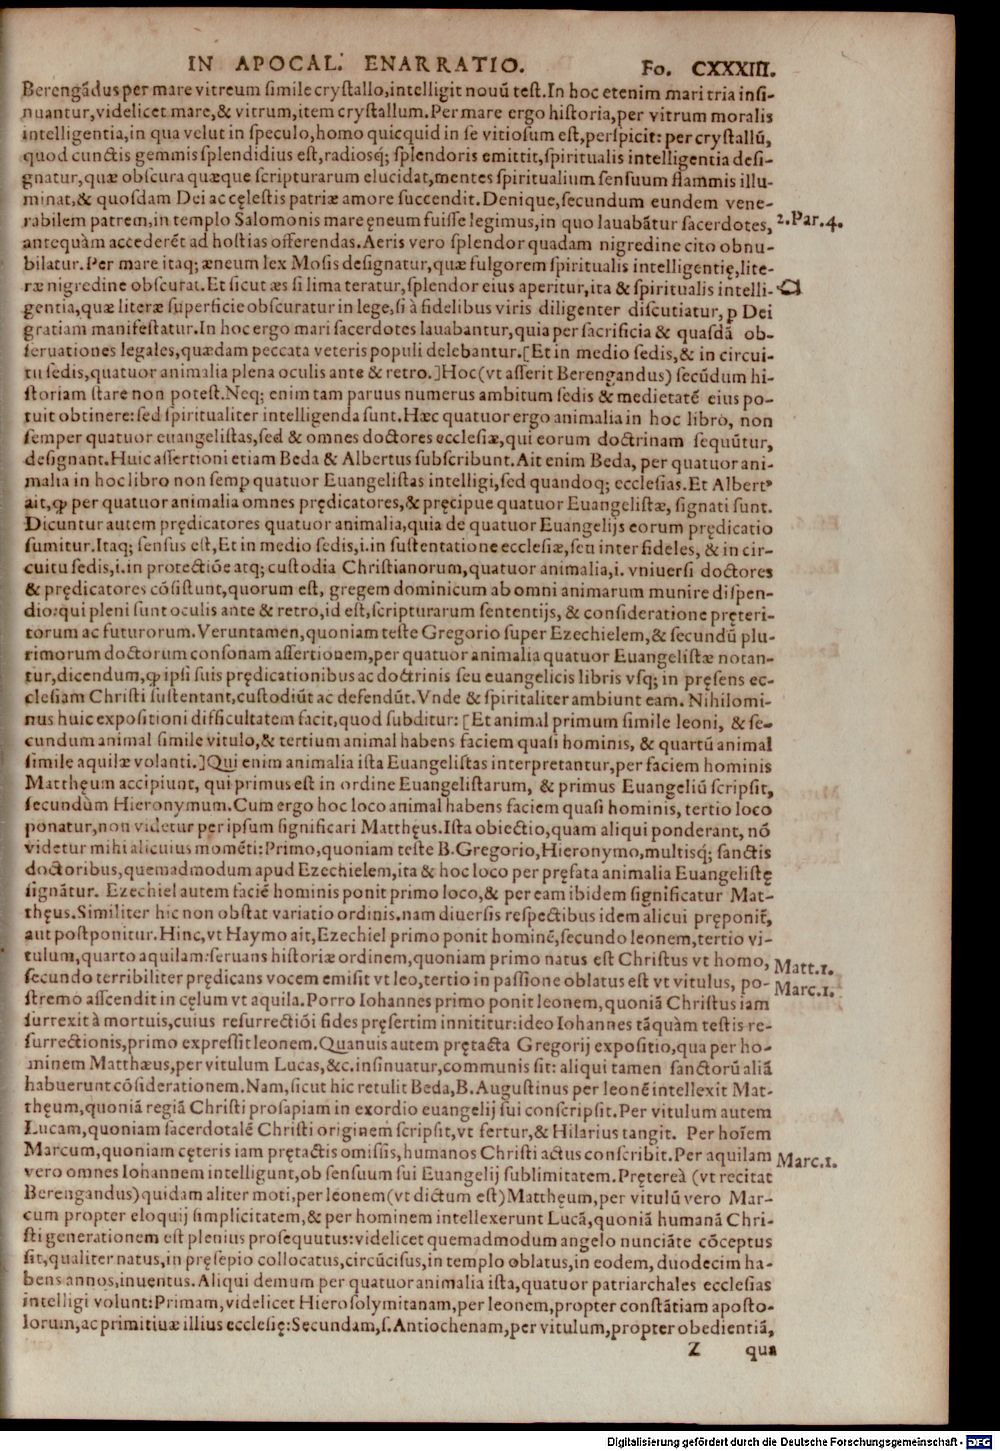 IN APOCAL. ENARRATIO. Fo. CXXXIII.
Berengādus per mare vitreum simile crystallo,intelligit nouū test.In hoc etenim mari tria insi-
nuantur,videlicet mare,& vitrum,item crystallum.Per mare ergo historia,per vitrum moralis
intelligentia,in qua velut in speculo,homo quicquid in se vitiosum est,perspicit: per crystallū,
quod cunctis gemmis splendidius est,radiosq; splendoris emittit,spiritualis intelligentia desi-
gnatur,quæ obscura quæque scripturarum elucidat,mentes spiritualium sensuum flammis illu-
minat,& quosdam Dei ac cęlestis patriæ amore succendit.Denique,secundum eundem vene-
rabilem patrem,in templo Salomonis mare ęneum fuisse legimus,in quo lauabātur sacerdotes, 2.Par.4.
antequàm accederēt ad hostias offerendas.Aeris vero splendor quadam nigredine cito obnu-
bilatur.Per mare itaq; æneum lex Mosis designatur,quæ fulgorem spiritualis intelligentię,lite-
ræ nigredine obscurat.Et sicut æs si lima teratur,splendor eius aperitur,ita & spiritualis intelli-
gentia,quæ literæ superficie obscuratur in lege,si à fidelibus viris diligenter discutiatur, p Dei
gratiam manifestatur.In hoc ergo mari sacerdotes lauabantur,quia per sacrificia & quasdā ob-
seruationes legales,quædam peccata veteris populi delebantur.[Et in medio sedis,& in circui-
tu sedis,quatuor animalia plena oculis ante & retro.]Hoc(vt asserit Berengandus) secūdum hi-
storiam stare non potest.Neq; enim tam paruus numerus ambitum sedis & medietatē eius po-
tuit obtinere: sed spiritualiter intelligenda sunt.Hæc quatuor ergo animalia in hoc libro, non
semper quatuor euangelistas,sed & omnes doctores ecclesiæ,qui eorum doctrinam sequūtur,
designant.Huic assertioni etiam Beda & Albertus subscribunt.Ait enim Beda, per quatuor ani-
malia in hoc libro non semp quatuor Euangelistas intelligi,sed quandoq; ecclesias.Et Albertꝰ
ait,ꝙ per quatuor animalia omnes prędicatores,& pręcipue quatuor Euangelistæ, signati sunt.
Dicuntur autem prędicatores quatuor animalia,quia de quatuor Euangelijs eorum prędicatio
sumitur.Itaq; sensus est,Et in medio sedis,i.in sustentatione ecclesiæ,seu inter fideles, & in cir-
cuitu sedis,i.in protectiōe atq; custodia Christianorum,quatuor animalia,i. vniuersi doctores
& prędicatores cōsistunt,quorum est, gregem dominicum ab omni animarum munire dispen-
dio:qui pleni sunt oculis ante & retro,id est,scripturarum sententijs, & consideratione pręteri-
torum ac futurorum.Veruntamen,quoniam teste Gregorio super Ezechielem,& secundū plu-
rimorum doctorum consonam assertionem,per quatuor animalia quatuor Euangelistæ notan-
tur,dicendum,ꝙ ipsi suis prędicationibus ac doctrinis seu euangelicis libris vsq; in pręsens ec-
clesiam Christi sustentant,custodiūt ac defendūt.Vnde & spiritaliter ambiunt eam. Nihilomi-
nus huic expositioni difficultatem facit,quod subditur: [Et animal primum simile leoni, & se-
cundum animal simile vitulo,& tertium animal habens faciem quasi hominis, & quartū animal
simile aquilæ volanti.]Qui enim animalia ista Euangelistas interpretantur,per faciem hominis
Matthęum accipiunt, qui primus est in ordine Euangelistarum, & primus Euangeliū scripsit,
secundùm Hieronymum.Cum ergo hoc loco animal habens faciem quasi hominis, tertio loco
ponatur,non videtur per ipsum significari Matthęus.Ista obiectio,quam aliqui ponderant, nō
videtur mihi alicuius momēti:Primo,quoniam teste B.Gregorio,Hieronymo,multisq; sanctis
doctoribus,quemadmodum apud Ezechielem,ita & hoc loco per pręfata animalia Euangelistę
signātur. Ezechiel autem faciē hominis ponit primo loco,& per eam ibidem significatur Mat-
thęus.Similiter hic non obstat variatio ordinis.nam diuersis respectibus idem alicui pręponit̄,
aut postponitur.Hinc,vt Haymo ait,Ezechiel primo ponit hominē,secundo leonem,tertio vi-
tulum,quarto aquilam:seruans historiæ ordinem,quoniam primo natus est Christus vt homo, Matt.1.
secundo terribiliter prędicans vocem emisit vt leo,tertio in passione oblatus est vt vitulus, po- Marc.1.
stremo ascendit in cęlum vt aquila.Porro Iohannes primo ponit leonem,quoniā Christus iam
surrexit à mortuis,cuius resurrectiōi fides pręsertim innititur:ideo Iohannes tāquàm testis re-
surrectionis,primo expressit leonem.Quanuis autem prętacta Gregorij expositio,qua per ho-
minem Matthæus,per vitulum Lucas,&c.insinuatur,communis sit: aliqui tamen sanctorū aliā
habuerunt cōsiderationem.Nam,sicut hic retulit Beda,B.Augustinus per leonē intellexit Mat-
thęum,quoniā regiā Christi prosapiam in exordio euangelij sui conscripsit.Per vitulum autem
Lucam,quoniam sacerdotalē Christi originem scripsit,vt fertur,& Hilarius tangit. Per hoīem
Marcum,quoniam cęteris iam prętactis omissis,humanos Christi actus conscribit.Per aquilam Marc.1.
vero omnes Iohannem intelligunt,ob sensuum sui Euangelij sublimitatem.Pręterea (vt recitat
Berengandus)quidam aliter moti,per leonem(vt dictum est)Matthęum,per vitulū vero Mar-
cum propter eloquij simplicitatem,& per hominem intellexerunt Lucā,quoniā humanā Chri-
sti generationem est plenius prosequutus:videlicet quemadmodum angelo nunciāte cōceptus
sit,qualiter natus,in pręsepio collocatus,circūcisus,in templo oblatus,in eodem, duodecim ha-
bens annos,inuentus.Aliqui demum per quatuor animalia ista,quatuor patriarchales ecclesias
intelligi volunt:Primam,videlicet Hierosolymitanam,per leonem,propter constātiam aposto-
lorum,ac primitiuæ illius ecclesię:Secundam,s.Antiochenam,per vitulum,propter obedientiā,
Z qua
Digitalisierung gefördert durch die Deutsche Forschungsgemeinschaft - DFG